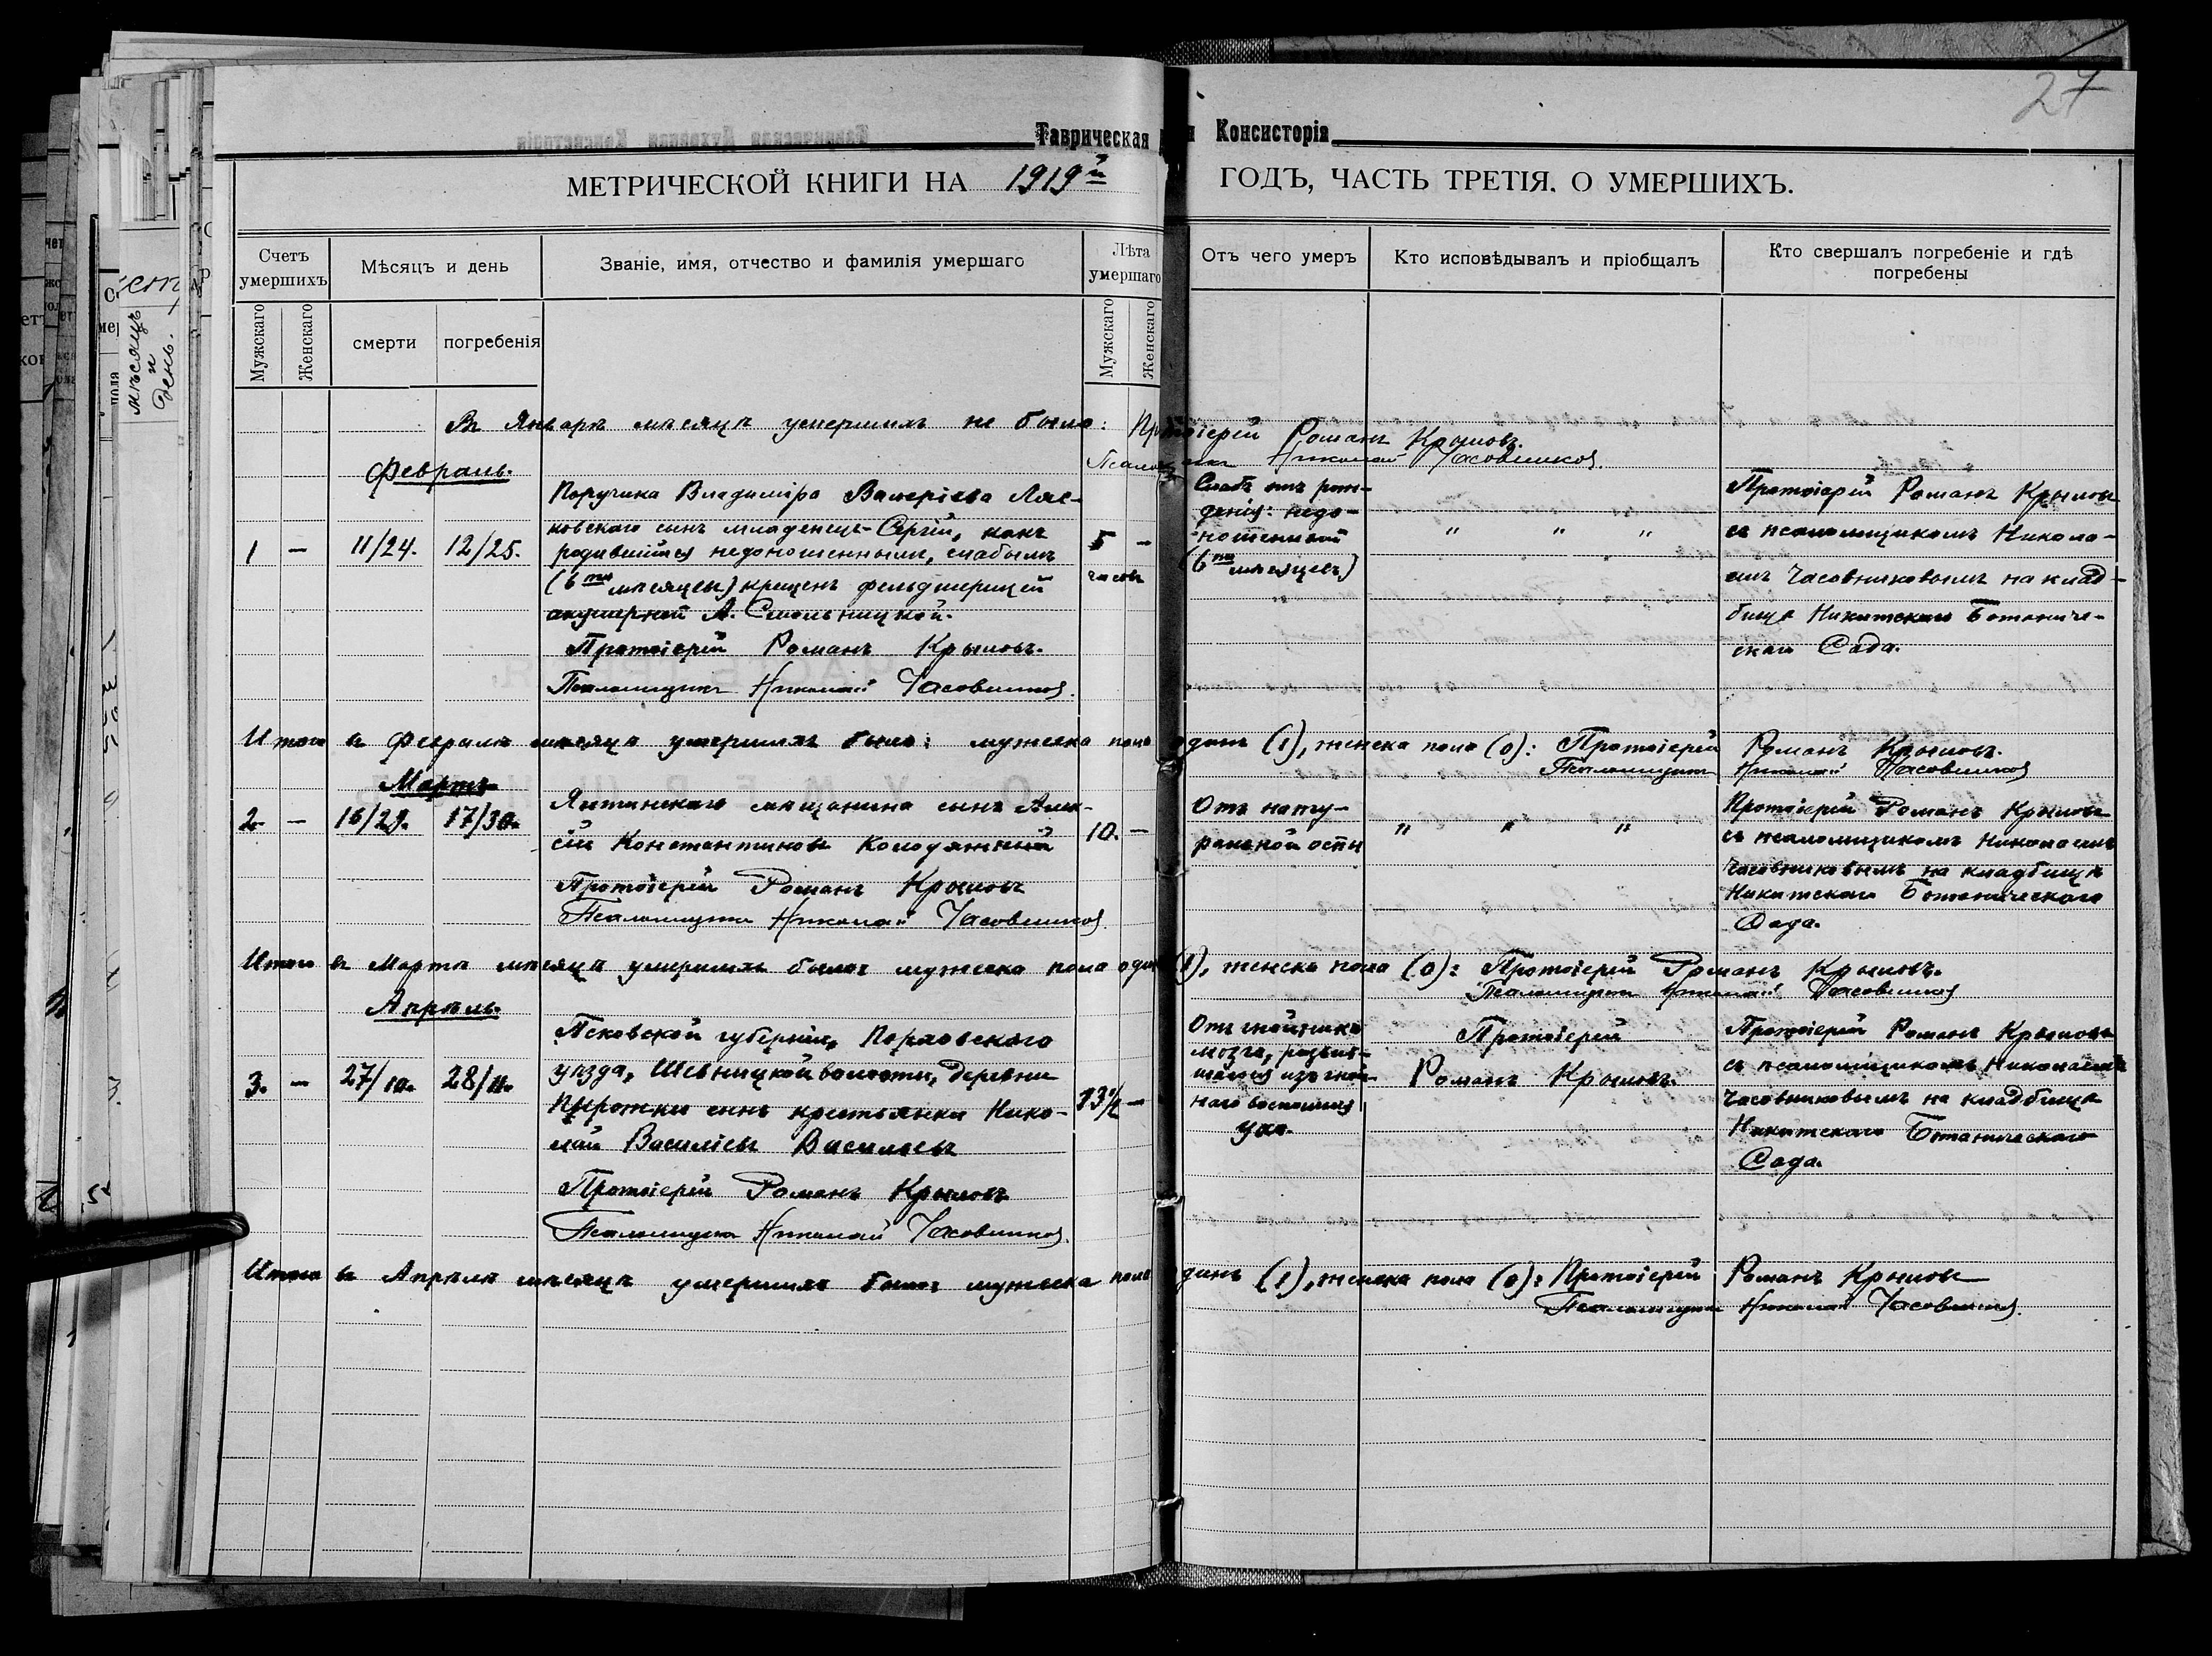 27
Таврическая
Консисторія
МЕТРИЧЕСКОЙ КНИГИ НА 1919й ГОДЪ, ЧАСТЬ ТРЕТІЯ. О УМЕРШИХЪ.
Счетъ умершихъ
Мѣсяцъ и день
Званіе, имя, отчество и фамилія умершаго
Лѣта умершаго
Отъ чего умеръ
Кто исповѣдывалъ и пріобщалъ
Кто свершалъ погребеніе и гдѣ погребены
Мужскаго
Женскаго
смерти
погребенія
Мужскаго
Женскаго
Въ Январѣ мѣсяцѣ умершихъ не было: Протоіерей Романъ Крыловъ.
Псаломщикъ Николай Часовников
Февраль.
1 – 11/24. 12/25.
Поручика Владиміра Валеріева Ляс-
ковскаго сынъ младенецъ Сергій, какъ
родившійся недоношеннымъ, слабымъ
(6ти мѣсяцевъ) крещенъ фельдшерицей
акушеркой А. Смольницкой.
Протоіерей Романъ Крыловъ.
Псаломщикъ Николай Часовников
5 –
часовъ
Слабъ отъ рож-
денія: недо-
ношенный
(6ти мѣсяцевъ)
" " "
Протоіерей Романъ Крыловъ
съ псаломщикомъ Никола-
емъ Часовниковымъ на клад-
бищѣ Никитскаго Ботаниче-
скаго Сада.
Итого въ Февралѣ мѣсяцѣ умершихъ было: мужеска пола одинъ (1), женска пола (0): Протоіерей Романъ Крыловъ.
Псаломщикъ Николай Часовников
Мартъ
2. – 16/29. 17/30.
Ялтинскаго мѣщанина сынъ Алек-
сій Константиновъ Колодяжный
Протоіерей Романъ Крыловъ
Псаломщикъ Николай Часовников
10. –
Отъ нату-
ральной оспы
" " "
Протоіерей Романъ Крыловъ
съ псаломщикомъ Николаемъ
Часовниковымъ на кладбищѣ
Никитскаго Ботаническаго
Сада.
Итого въ Мартѣ мѣсяцѣ умершихъ было: мужеска пола одинъ (1), женска пола (0): Протоіерей Романъ Крыловъ.
Псаломщикъ Николай Часовников
Апрѣль.
3. – 27/10. 28/11.
Псковской губерніи, Порховскаго
уѣзда, волости, деревни
сынъ крестьянки Нико-
лай Василіевъ Васильевъ
Протоіерей Романъ Крыловъ
Псаломщикъ Николай Часовников
13½ –
Отъ гнойника
мозга, развив-
шагося изъ гной-
наго воспаленія
уха.
Протоіерей
Романъ Крыловъ.
Протоіерей Романъ Крыловъ
съ псаломщикомъ Николаемъ
Часовниковымъ на кладбищѣ
Никитскаго Ботаническаго
Сада.
Итого въ Апрѣлѣ мѣсяцѣ умершихъ было: мужеска пола одинъ (1), женска пола (0): Протоіерей Романъ Крыловъ
Псаломщикъ Николай Часовников
мѣсяцъ
и
день.